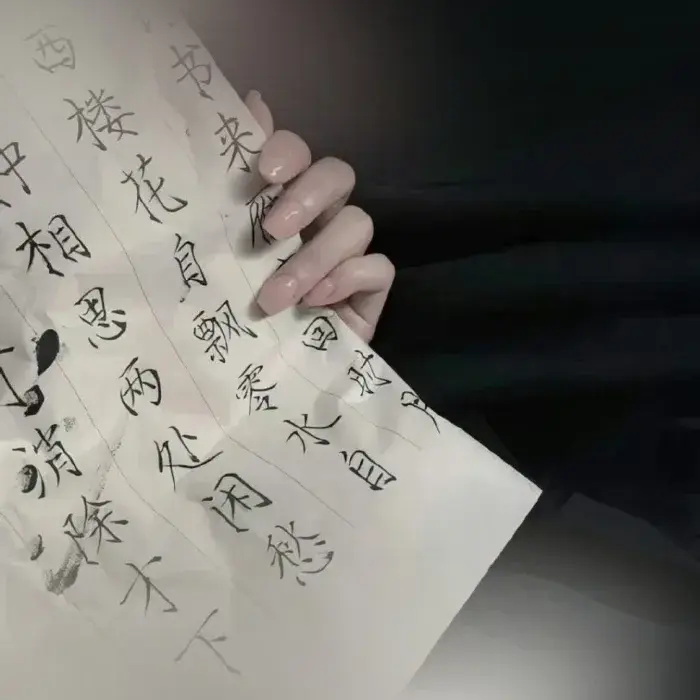 书来雁回时月
西楼花自飘零水自
种相思两处闲愁
消除才下